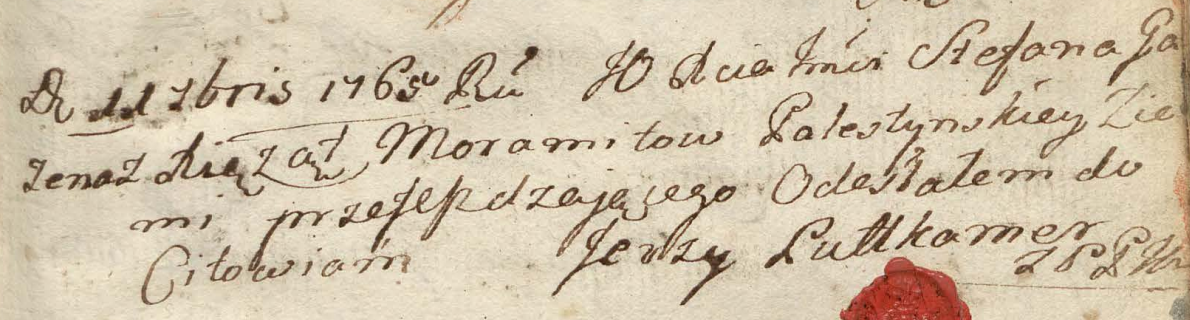 D 11 7bris 1765 Ru JO Xcia Jmci Stefana Ga
zenaz Xiążąt Moramitow Palestynskiey Zie
mi przejeżdzającego Odesłałem do
Citowian Jerzy Puttkamer